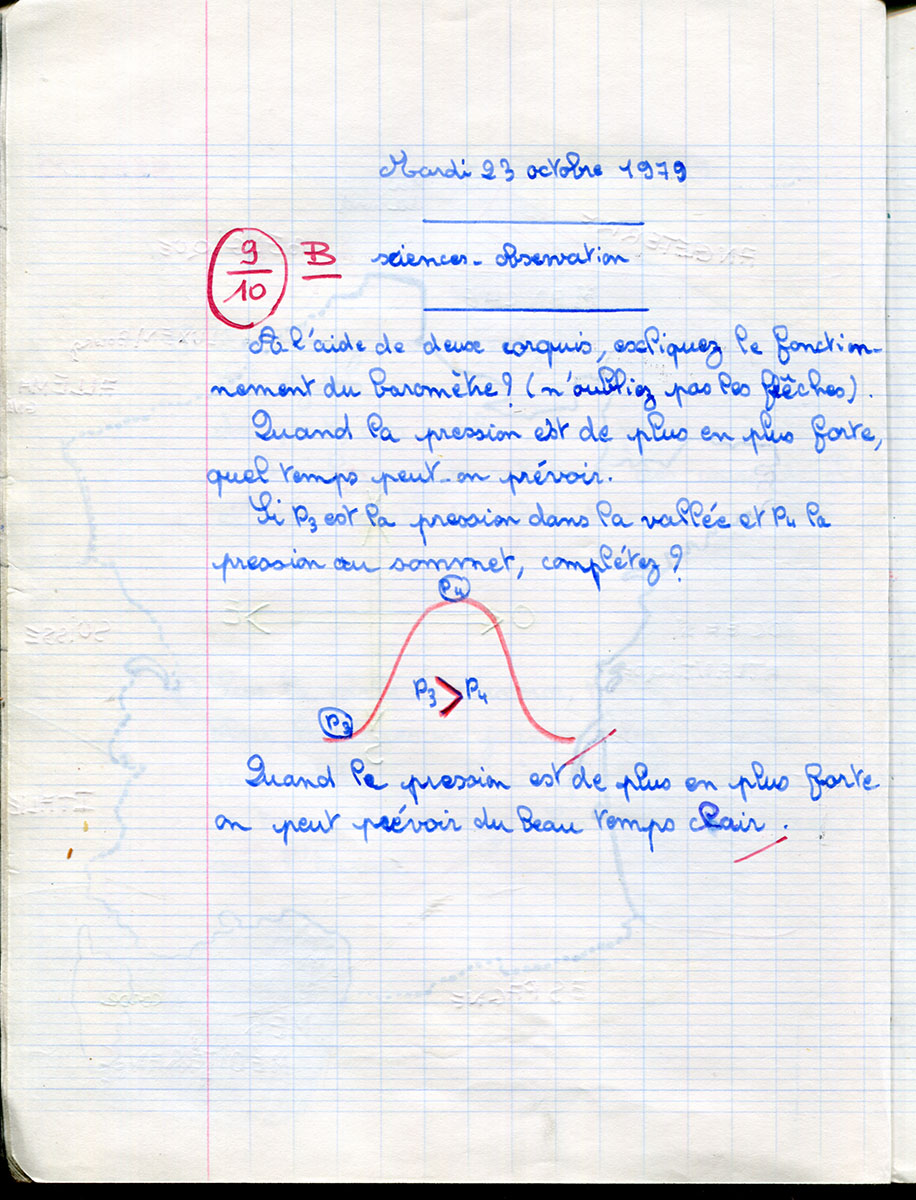 Mardi 23 octobre 1979
9/10 B sciences - observation
A l'aide de deux corquis, expliquez le fonction-
nement du baromètre ? (n'oubliez pas les flêches).
Quand la pression est de plus en plus forte,
quel temps peut-on prévoir.
Si P3 est la pression dans la vallée et P4 la
pression au sommet, complétez ?
P4
P3 > P4
P3
Quand le pression est de plus en plus forte
on peut prévoir du beau temps clair.
SUISSE
ESPAGNE